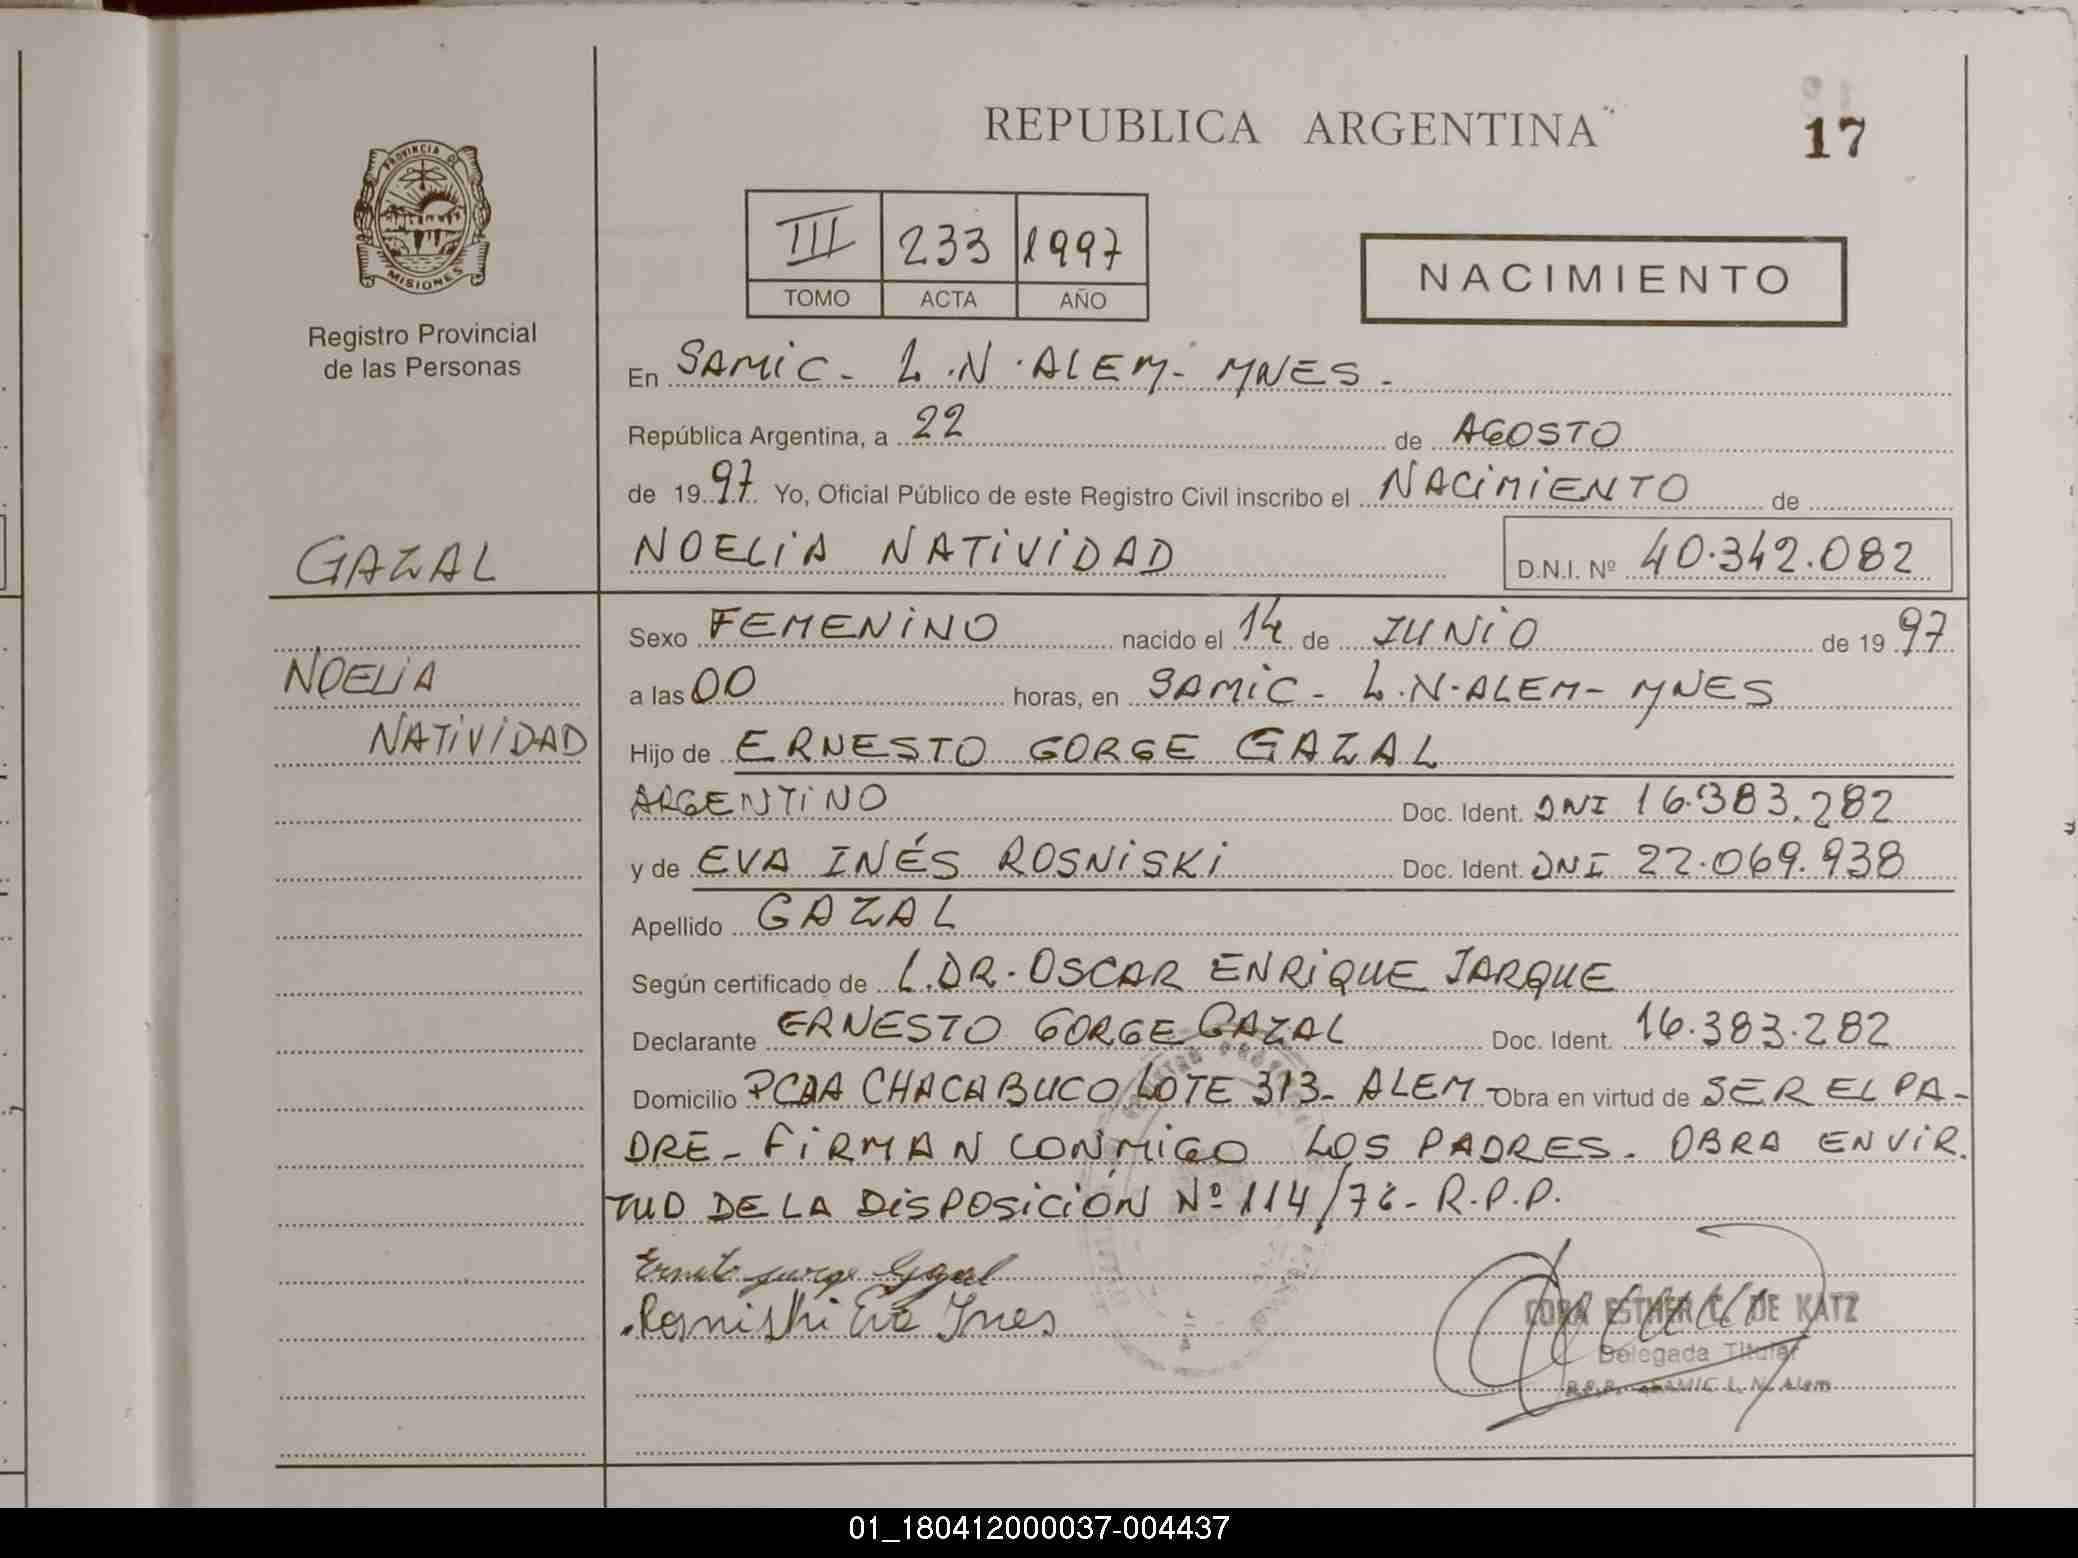 REPUBLICA ARGENTINA
17
PROVINCIA DE
MISIONES
Registro Provincial
de las Personas
III 233 1997
TOMO ACTA AÑO
NACIMIENTO
En SAMIC - L.N. ALEM - MNES -
República Argentina, a 22 de AGOSTO
de 19 97 Yo, Oficial Público de este Registro Civil inscribo el NACIMIENTO de
GAZAL
NOELIA NATIVIDAD D.N.I. Nº 40.342.082
Sexo FEMENINO nacido el 14 de JUNIO de 19 97
NOELIA
a las 00 horas, en SAMIC - L.N. ALEM - MNES
NATIVIDAD
Hijo de ERNESTO GORGE GAZAL
ARGENTINO Doc. Ident. DNI 16.383.282
y de EVA INÉS ROSNISKI Doc. Ident. DNI 22.069.938
Apellido GAZAL
Según certificado de L.DR. OSCAR ENRIQUE JARQUE
Declarante ERNESTO GORGE GAZAL Doc. Ident. 16.383.282
Domicilio PCDA CHACABUCO LOTE 313 - ALEM - Obra en virtud de SER EL PA-
DRE - FIRMAN CONMIGO LOS PADRES. OBRA EN VIR.
TUD DE LA DISPOSICIÓN Nº 114/76 - R.P.P.
Ernesto Jorge Gazal
Rosniski Eva Ines
CORA ESTHER C. DE KATZ
Delegada Titular
R.P.P. SAMIC L. N. Alem
01_180412000037-004437